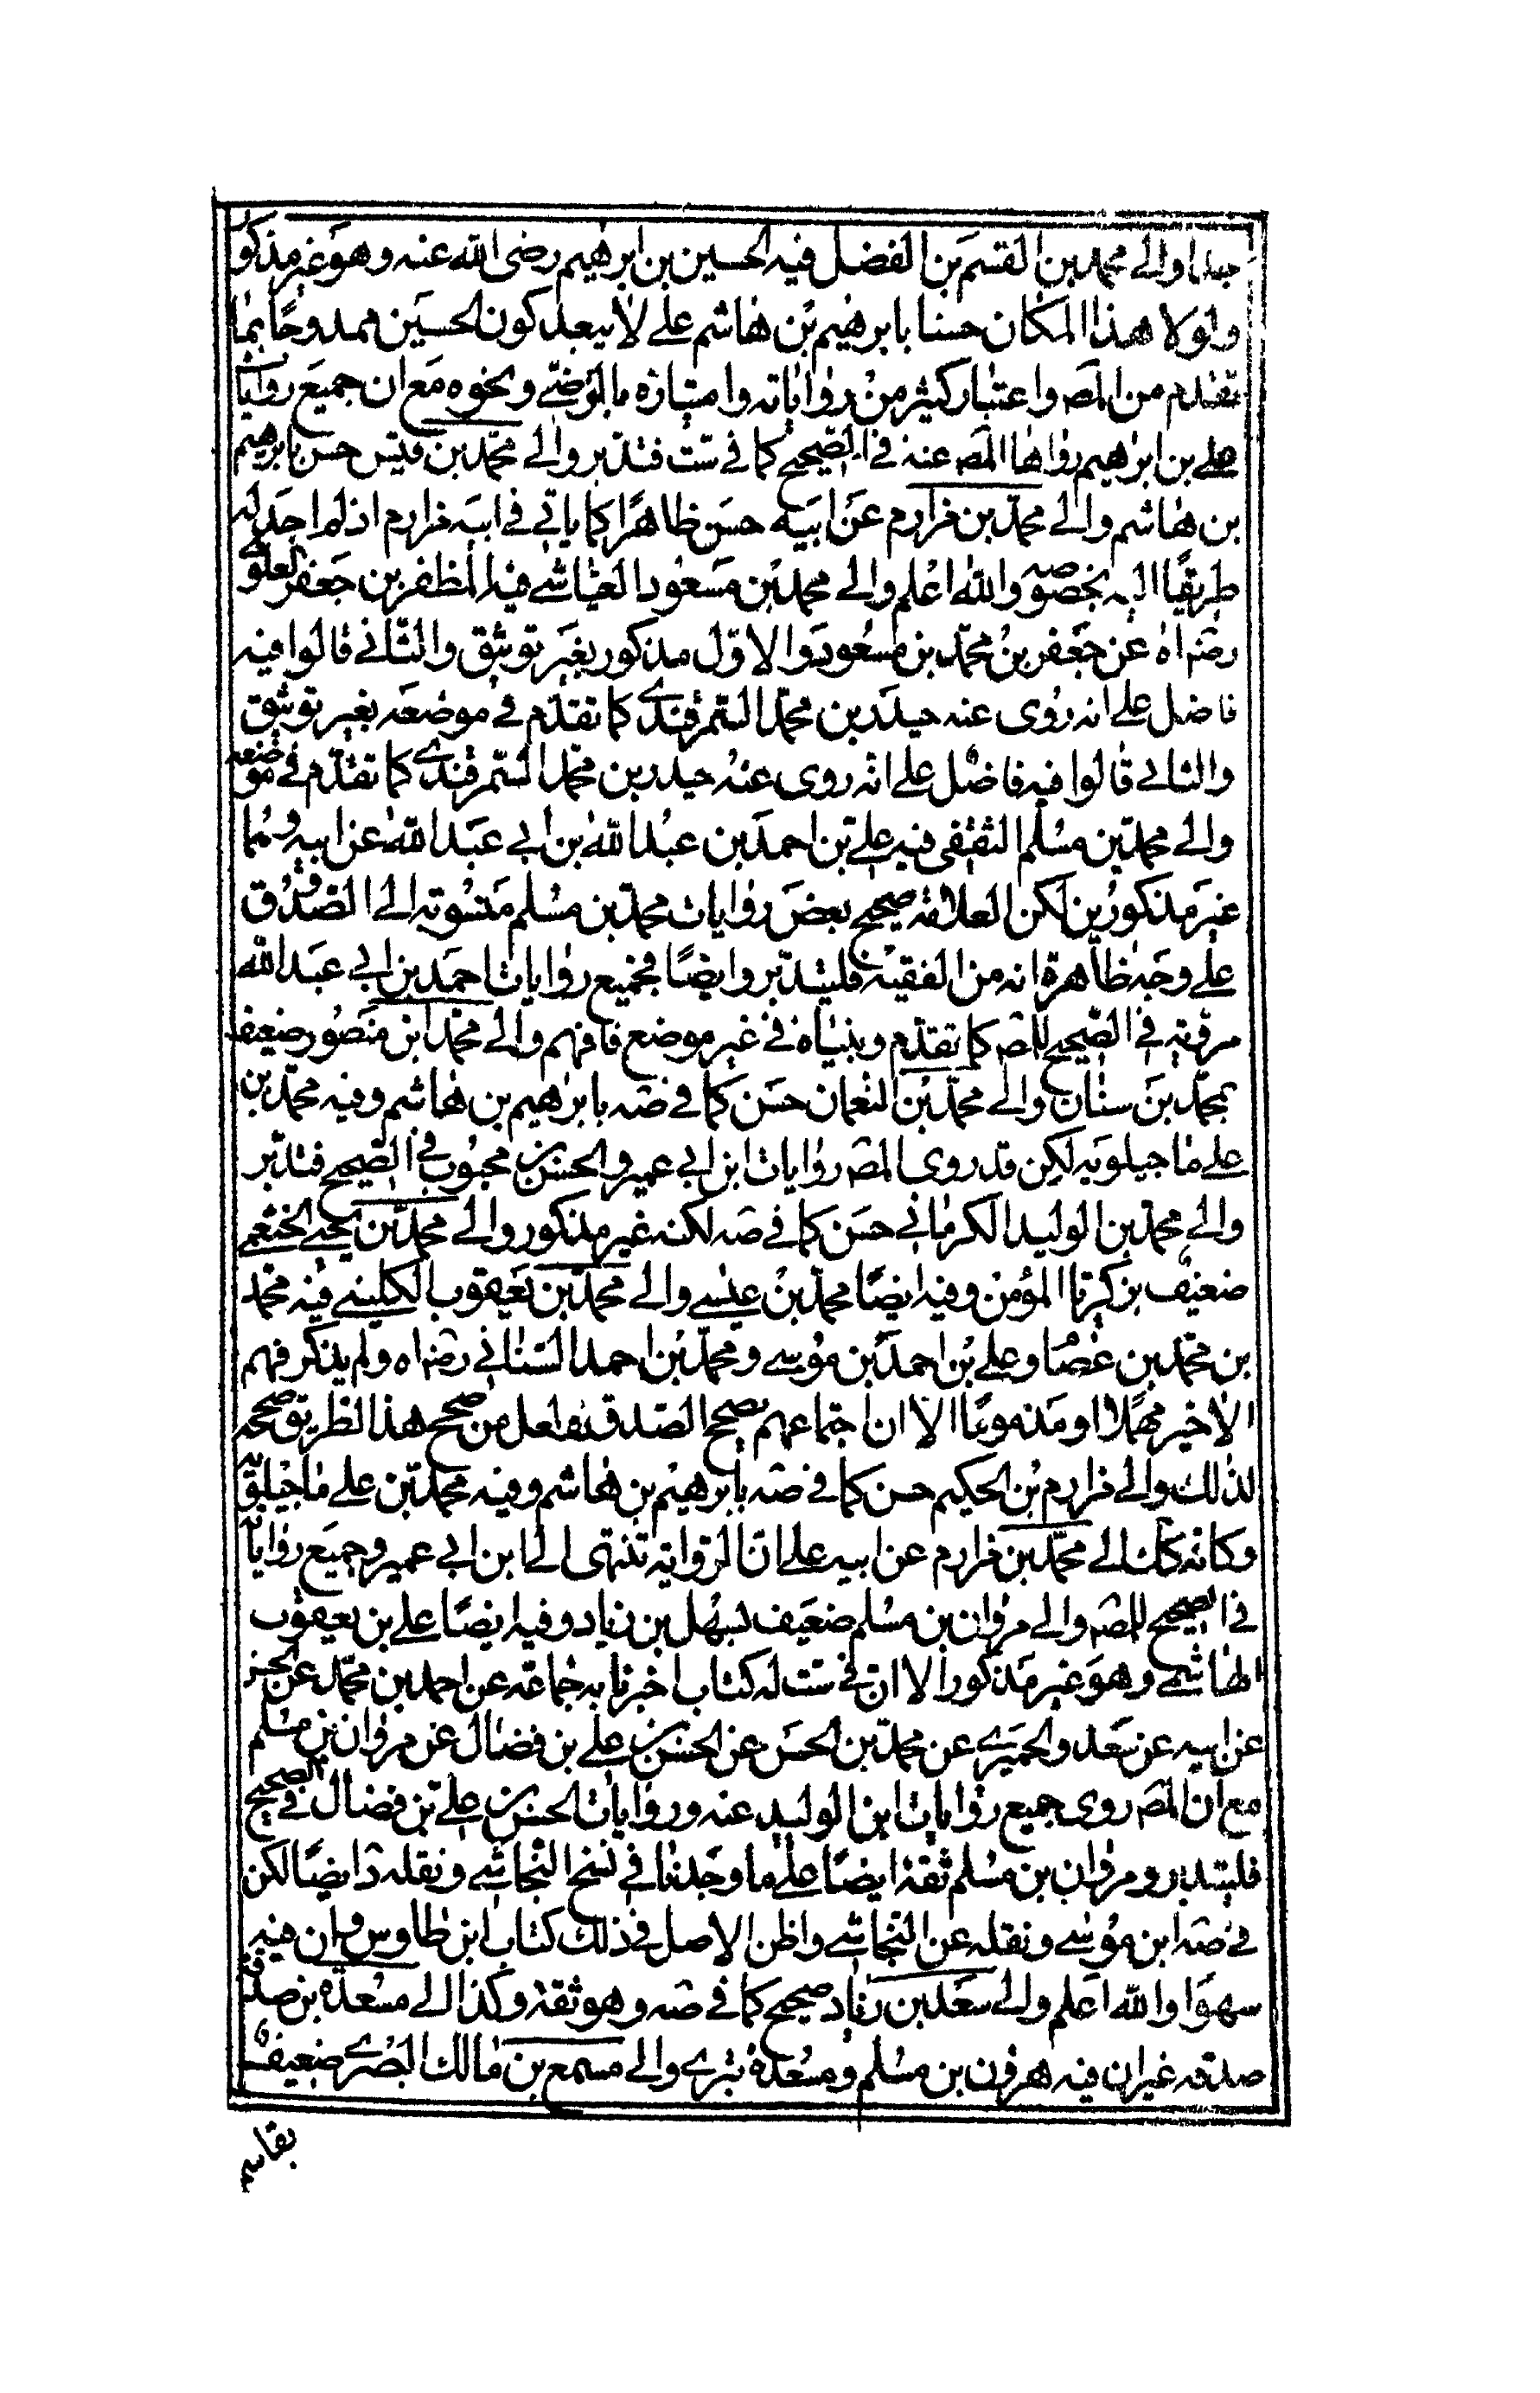 جدا والے محمد بن القسم بن الفضل فيه الحسين بن ابرهيم رضى الله عنه وهو غير مذكو
ولولا هذا المكان حسنا بابرهيم بن هاشم علے لا يبعد كون الحسين ممدوحا بما
تقدم من المص واعتبار كثير من رواياته وامتيازه بالترضے ونحوه مع ان جميع روايا
علے بن ابرهيم رواها المص عنه فے الصحيح كما فے ست فتدبر والے محمد بن قيس حسن بابرهيم
بن هاشم والے محمد بن خرارم عن ابيه حسن ظاهرا كما ياتے فے ابيه خرارم اذ لم اجد له
طريقا اليه بخصوصه والله اعلم والے محمد بن مسعود العياشے فيه المظفر بن جعفر العلوے
رضراه عن جعفر بن محمد بن مسعود والاول مذكور بغير توثيق والثانے قالوا فيه
فاضل علے انه روى عنه حيدر بن محمد السمرقندے كما تقدم فے موضعه بغير توثيق
والثانے قالوا فيه فاضل علے انه روى عنه حيدر بن محمد السمرقندے كما تقدم فے موضعه
والے محمد بن مسلم الثقفى فيه علے بن احمد بن عبد الله بن ابے عبد الله عن ابيه وهما
غير مذكورين لكن العلامة صحح بعض روايات محمد بن مسلم منسوبة الے الصدوق
علے وجه ظاهرة انه من الفقيه فليتدبر وايضا فجميع روايات احمد بن ابے عبد الله
مروية فے الصحيح للمص كما تقدم وبنياه فے غير موضع فافهم والے محمد ابن منصور ضعيف
بمحمد بن سنان والے محمد بن النعمان حسن كما فے صه بابرهيم بن هاشم وفيه محمد بن
علے ماجيلويه لكن قد روى المص روايات ابن ابے عمير والحسن بن محبوب فے الصحيح فتدبر
والے محمد بن الوليد الكرمانے حسن كما فے صه لكنه غير مذكور والے محمد بن يحيے الخثعمے
ضعيف بزكريا المؤمن وفيه ايضا محمد بن عيسے والے محمد بن يعقوب الكلينے فيه محمد
بن محمد بن عصا وعلے بن احمد بن موسے ومحمد بن احمد السنانے رضراه ولم يذكر فهم
الاخير مهملا او مذموما الا ان اجتماعهم يصحح الصدق ولعل من صحح هذا الطريق صححه
لذلك والے خرارم بن الحكيم حسن كما فے صه بابرهيم بن هاشم وفيه محمد بن علے ماجيلويه
وكانه كان الے محمد بن خرارم عن ابيه علے ان الرواية تنتهى الے ابن ابے عمير وجميع رواياته
فے الصحيح للمص والے مروان بن مسلم ضعيف بسهل بن زياد وفيه ايضا علے بن يعقوب
الهاشمے وهو غير مذكور الا ان فے ست له كتاب اخبرنا به جماعة عن احمد بن محمد عن الحسن
عن ابيه عن سعد والحميرے عن محمد بن الحسن عن الحسن بن علے بن فضال عن مروان بن مسلم
مع ان المص روى جميع روايات ابن الوليد عنه وروايات الحسن بن علے بن فضال فے الصحيح
فليتدبر ومروان بن مسلم ثقة ايضا علے ما وجدنا فے نسخ النجاشے ونقله د ايضا لكن
فے صه ابن موسے ونقله عن النجاشے واظن الاصل فے ذلك كتاب ابن طاوس وان فيه
سهوا والله اعلم والے سعد بن زياد صحيح كما فے صه وهو ثقة وكذا الے مسعدة بن صدقة
صدقه غير ان فيه هرون بن مسلم ومسعدة بترے والے مسمع بن مالك البصرے ضعيف
بقاسم